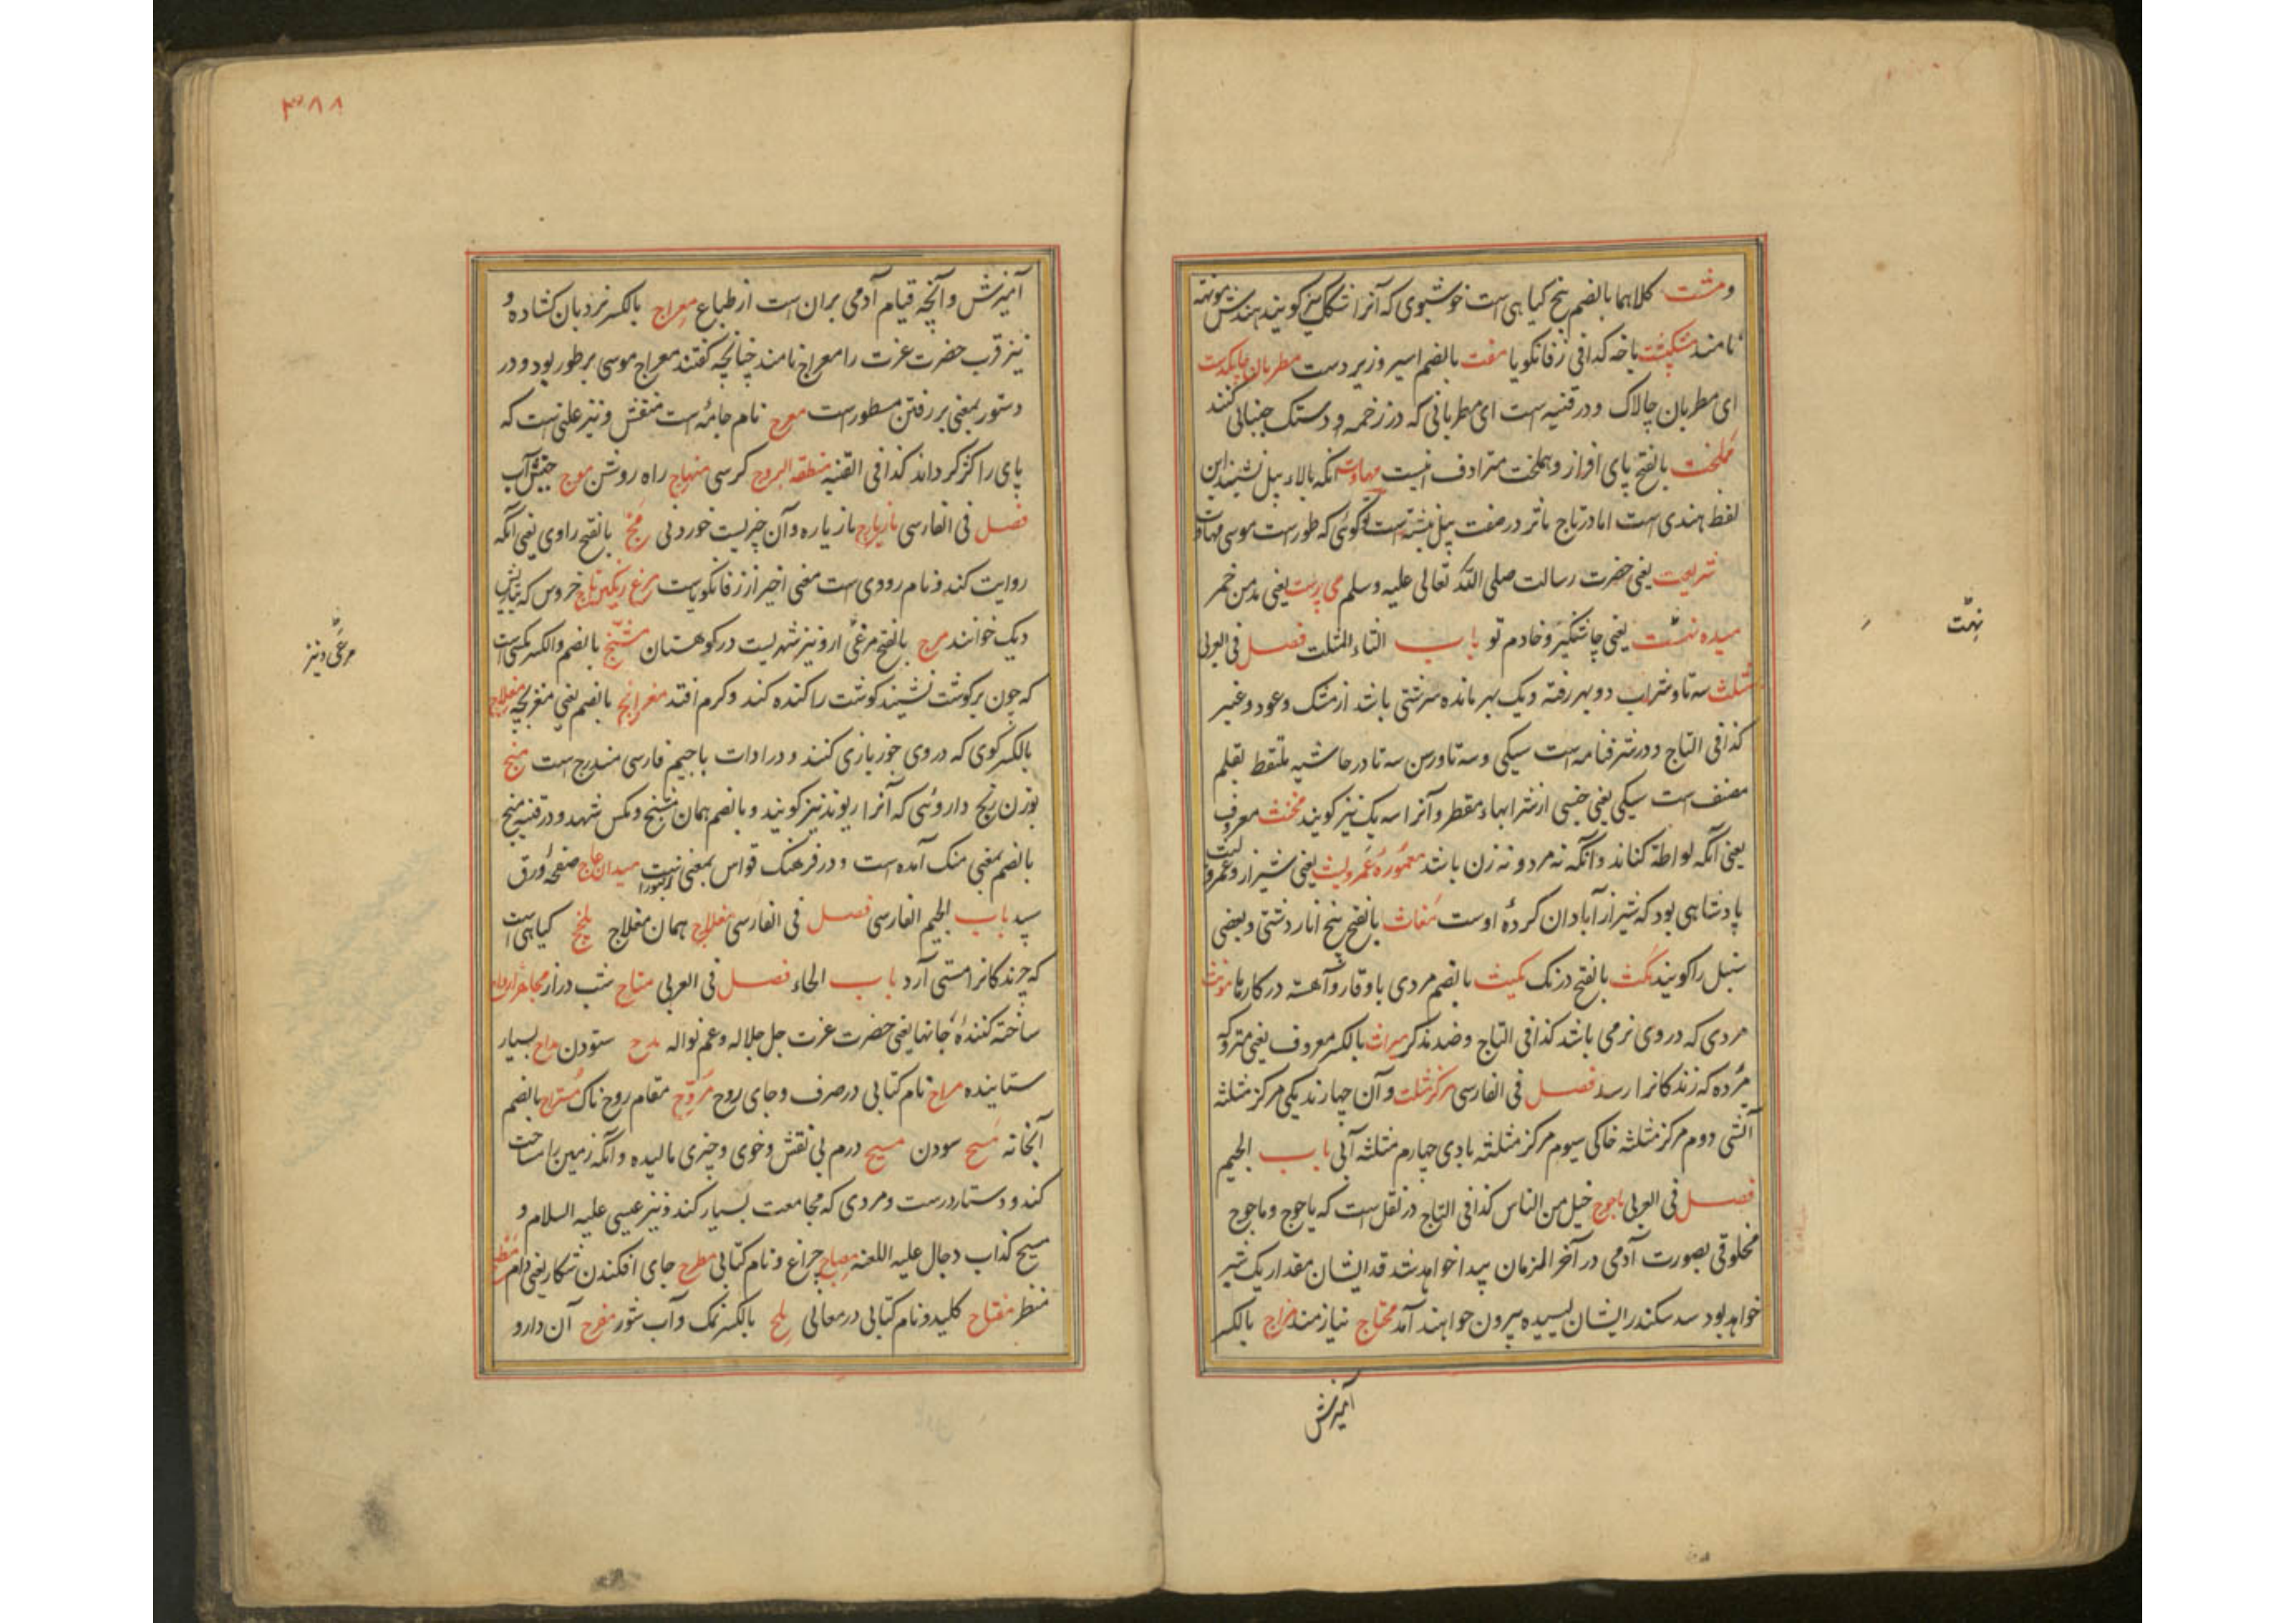 ومشت کلاهما بالضم بیخ کیاهی است خوشبوی که آنرا مشک نیز کویند هندش موتهه
نامند باخه کذافی زفانکویا مفت بالضم اسیر و زیر دست مطربان چابکدست
ای مطربان چالاک و در قنیه است ای مطربانی که در زخمه و دستک جنبانی کنند
مملخت بالفتح پای افزار و هملخت مترادف انیست مهاوت آنکه بالاء پیل نشیند این
لفظ هندی است اما در تاج ماثر در صفت پیل نبشته است کوئی که طور است موسی مهاوت
شریعت یعنی حضرت رسالت صلی الله تعالی علیه وسلم می پرست یعنی مدمن خمر
میده نهت یعنی چاشنکیر و خادم تو باب الثاء المثلث فصل فی العربی
مثلث سه تا و شراب دو بهر رفته و یک بهر مانده سرشتی باشد از مشک و عود و غیر
کذافی التاج و در شرفنامه است سیکی و سه تا و رسن سه تا در حاشیه ملتقط بقلم
مصنف است سیکی یعنی جنسی از شرابهاء مقطر و آنرا سه یک نیز کویند مخنث معروف
یعنی آنکه لواطة کناند و آنکه نه مرد و نه زن باشد معموره عمرو لیث یعنی شیراز و عمرو لیث
پادشاهی بود که شیراز آبادان کردهٔ اوست مغاث بالفتح بیخ انار دشتی و بعضی
سنبل را کویند مکث بالفتح درنک مکیث بالضم مردی باوقار و آهسته در کارها مونث
مردی که در وی نرمی باشد کذافی التاج و ضد مذکر میراث بالکسر معروف یعنی متروکه
مرده که زندکانرا رسد فصل فی الفارسی مرکز مثلث و آن چهارند یکی مرکز مثلثه
آتشی دوم مرکز مثلثه خاکی سیوم مرکز مثلثه بادی چهارم مثلثه آبی باب الجیم
فصل فی العربی ماجوج خیل من الناس کذافی التاج در نقل است که یاجوج و ماجوج
مخلوقی بصورت آدمی در آخر الزمان پیدا خواهد شد قد ایشان مقدار یک شبر
خواهد بود سد سکندر ایشان لیسیده بیرون خواهند آمد محتاج نیازمند مزاج بالکسر
آمیزش
نهت
۳۸۸
آمیزش و آنچه قیام آدمی بران است از طباع معراج بالکسر نردبان کشاده و
نیز قرب حضرت عزت را معراج نامند چنانچه کفتند معراج موسی بر طور بود و در
دستور بمعنی بر رفتن مسطور است معرج نام جامهٔ است منقش و نیز علتی است که
پای را کژ کرداند کذافی القنیه منطقة البروج کرسی منهاج راه روشن موج جنبش آب
فصل فی الفارسی مازیارج مازیاره و آن چیزیست خوردنی مج بالفتح راوی یعنی آنکه
روایت کند و نام رودی است معنی اخیر از زفانکویاست مرغ رنکین تاج خروس که بتازیش
دیک خوانند مرج بالفتح مرغی ارو نیز شهریست در کوهستان منج بالضم والکسر مکسی است
که چون بر کوشت نشیند کوشت را کنده کند و کرم افتد بالضم یعنی منغ بچه مغلاج
بالکسر کوی که در وی جوز بازی کنند و در ادات با جیم فارسی مندرج است منج
بوزن رنج داروئی که آنرا ریوند نیز کویند و بالضم همان و مکس شهد و در قنیه منج
بالضم بمعنی منک آمده است و در فرهنک قواس بمعنی زنبور است میدان عاج صفحهٔ ورق
سپید باب الجیم الفارسی فصل فی الفارسی مغلاج همان مغلاج ملج کیاهی است
که چرندکانرا مستی آرد باب الحاء فصل فی العربی متاح شب دراز
ساخته کنندهٔ جانها یعنی حضرت عزت جل جلاله و عم نواله مدح ستودن مداح بسیار
ستاینده مراح نام کتابی در صرف و جای روح مروح مقام روح ناک مستراح بالضم
آبخانه مسح سودن مسیح درم بی نقش و خوی و چیزی مالیده و آنکه زمین را مساحت
کند و دستار درست و مردی که مجامعت بسیار کند و نیز عیسی علیه السلام و
مسیح کذاب دجال علیه اللعنه مصباح چراغ و نام کتابی مطرح جای افکندن شکار یعنی دام مطمح
منظر مفتاح کلید و نام کتابی در معانی ملح بالکسر نمک و آب شور مفرح آن دارو
مرغی و نیز